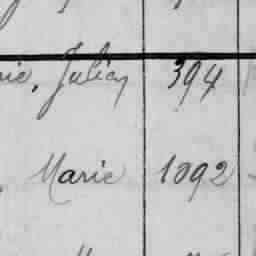 rie, Julien 394
Marie 1092